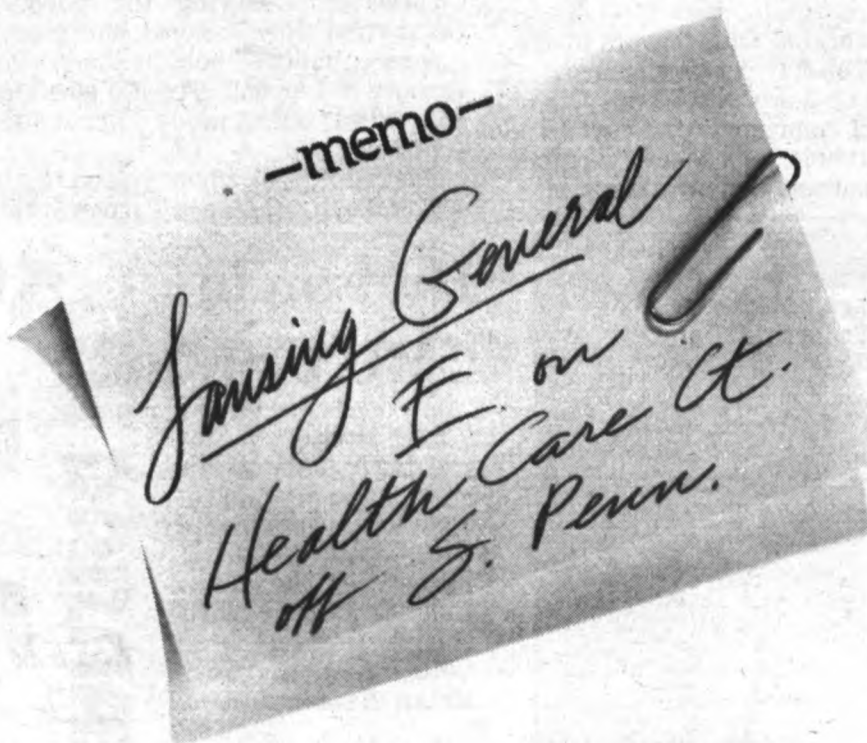 –memo–
Lansing General
E. on
Health Care Ct.
off S. Penn.